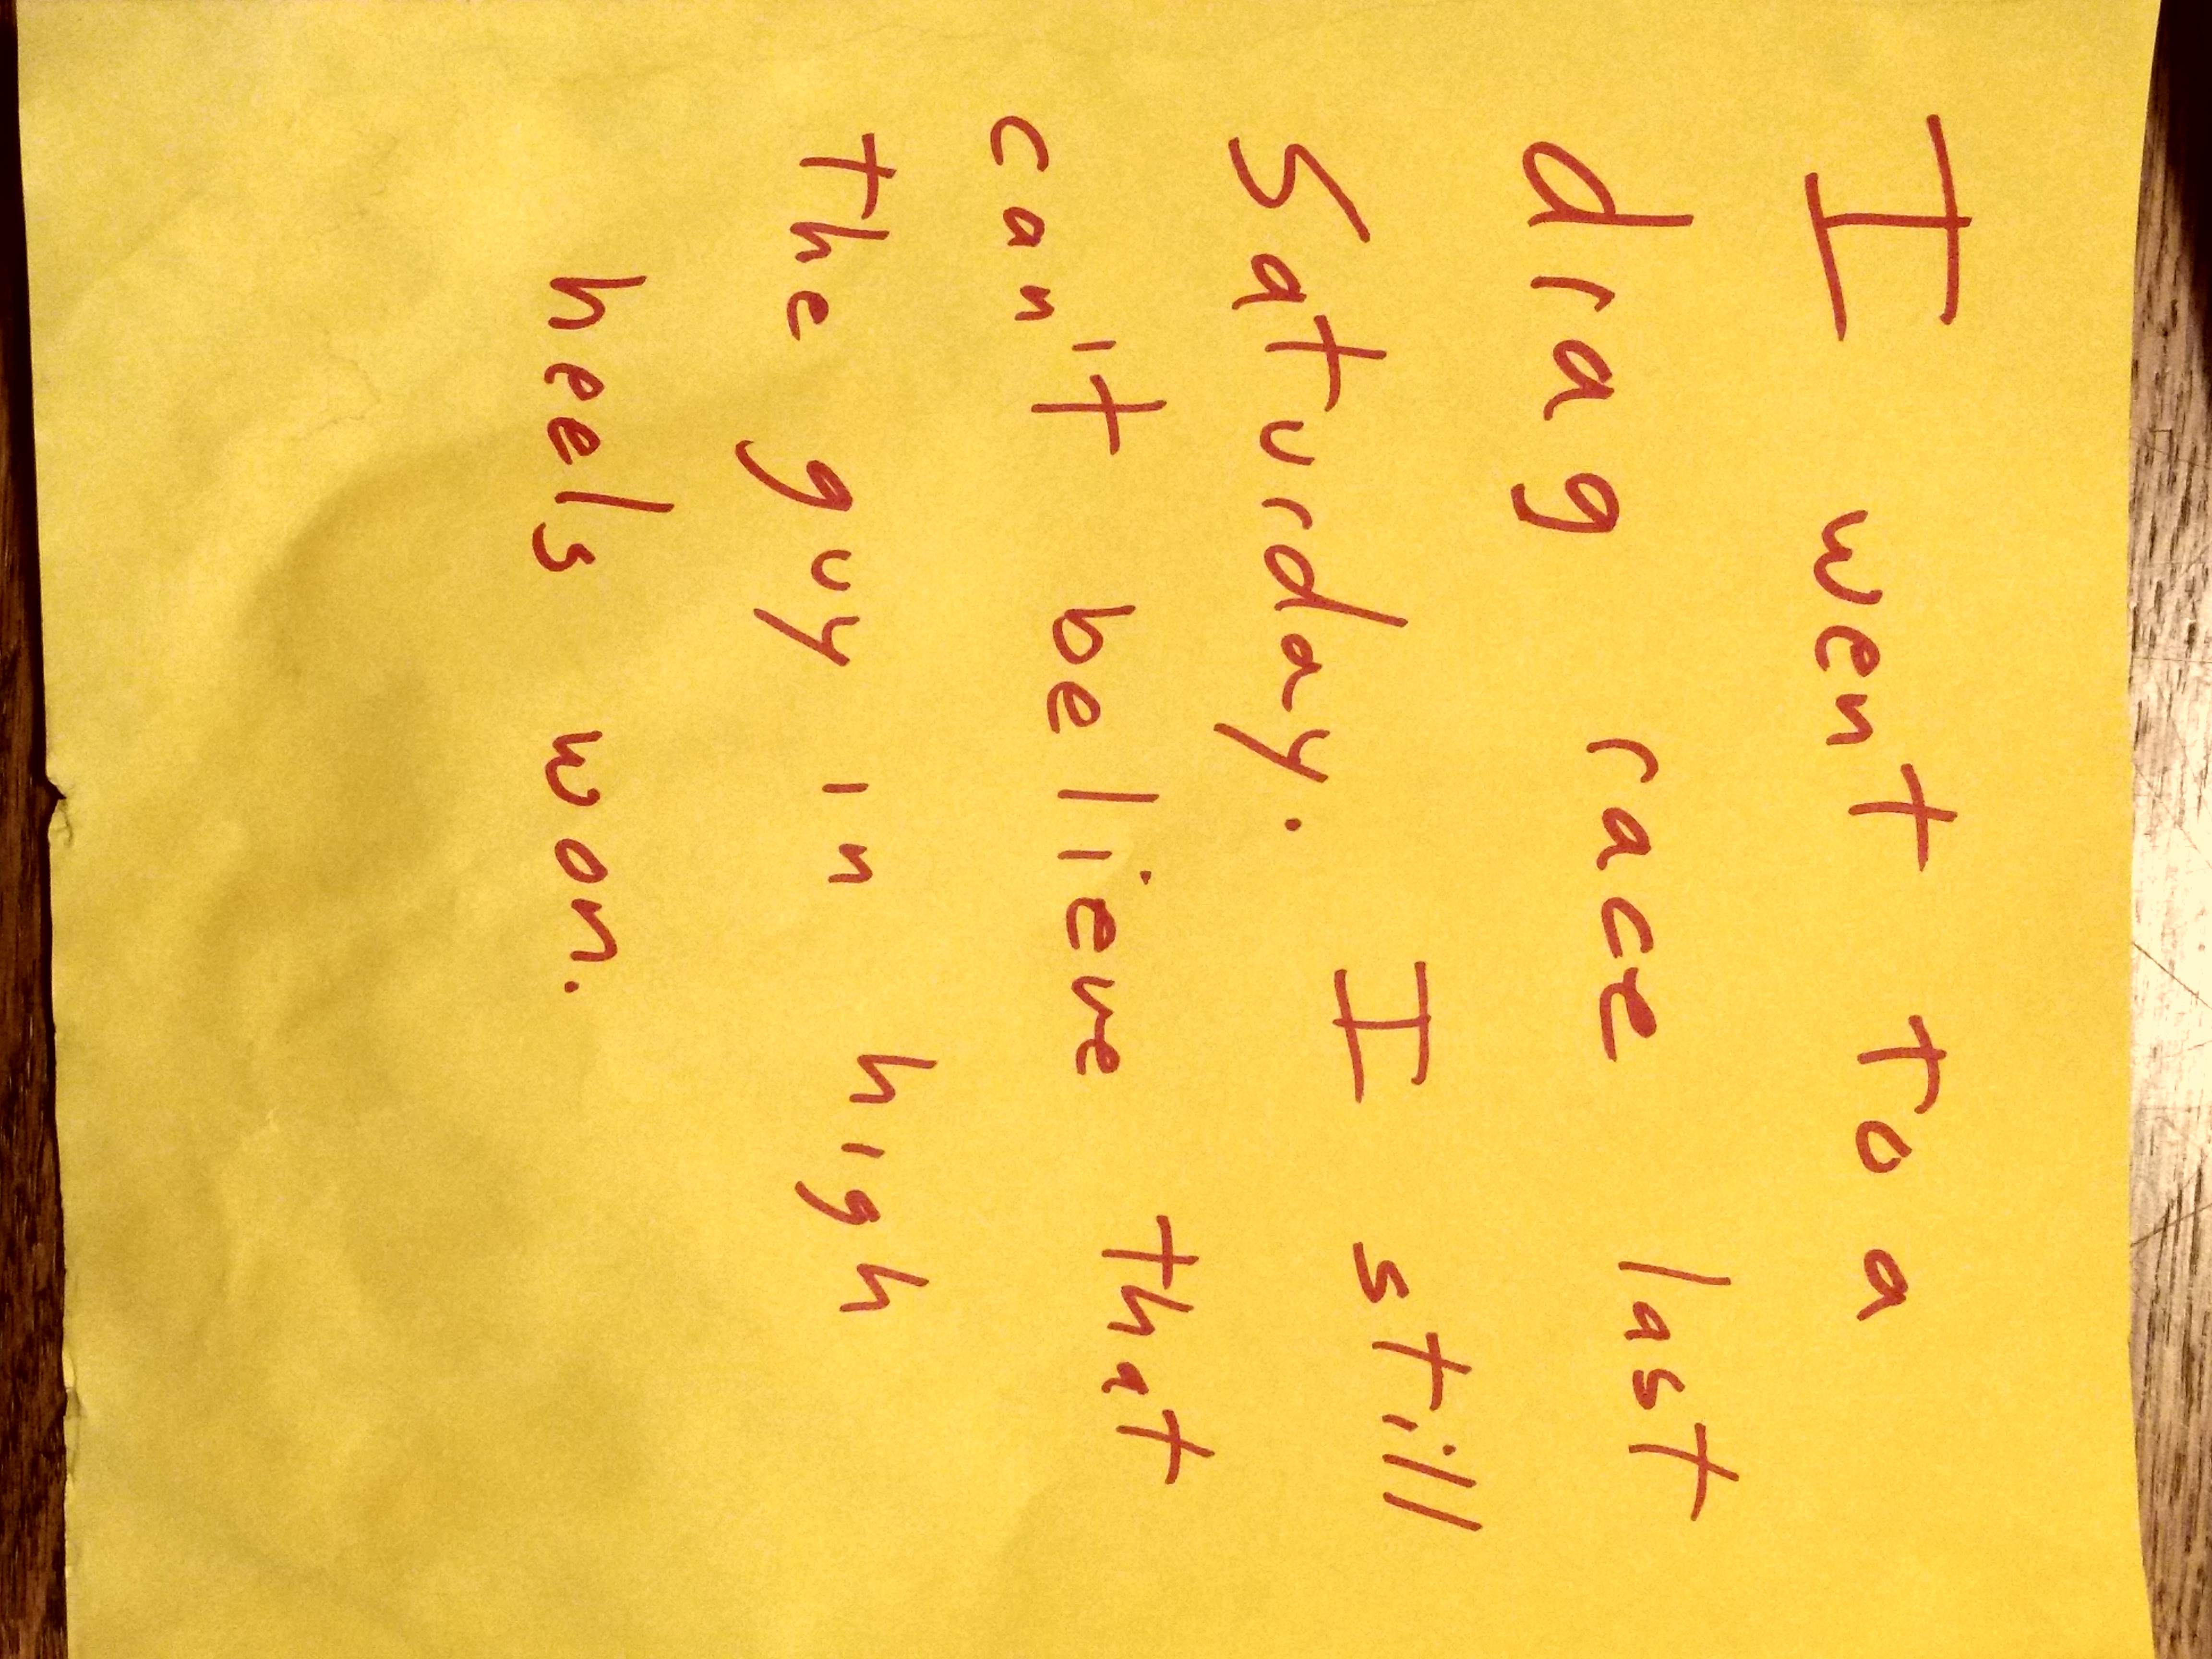 I went to a
drag race last
Saturday. I still
can't believe that
the guy in high
heels won.